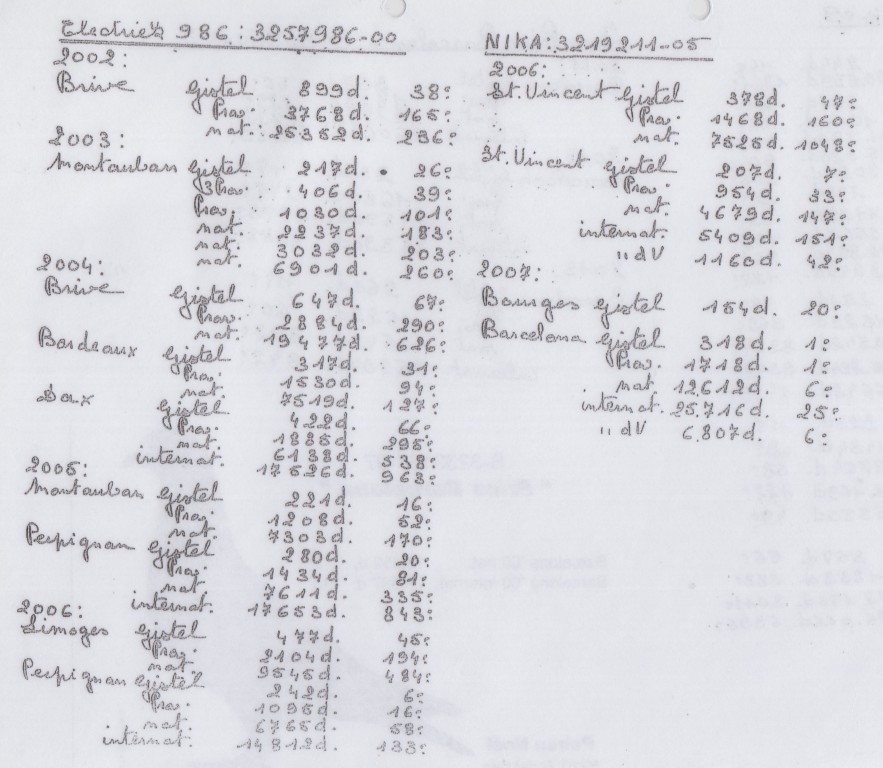 Electriek 986: 3257986-00
2002:
Brive Gistel 899d. 38e
Prov. 3768d. 165e
nat. 25352d. 236e
2003:
Montauban Gistel 217d. 26e
3Prov. 406d. 39e
Prov. 1030d. 101e
nat. 2237d. 183e
nat. 3032d. 203e
nat. 6901d. 260e
2004:
Brive Gistel 647d. 67e
Prov. 2884d. 290e
nat. 19477d. 626e
Bordeaux Gistel 317d. 31e
Prov. 1530d. 94e
nat. 7519d. 127e
Dax Gistel 422d. 66e
Prov. 1885d. 295e
nat. 6138d. 538e
internat. 17526d. 963e
2005:
Montauban Gistel 221d. 16e
Prov. 1208d. 52e
nat. 7303d. 170e
Perpignan Gistel 280d. 20e
Prov. 1434d. 81e
nat. 7611d. 335e
internat. 17653d. 843e
2006:
Limoges Gistel 477d. 45e
Prov. 2104d. 194e
nat. 9545d. 484e
Perpignan Gistel 242d. 6e
Prov. 1095d. 16e
nat. 6765d. 58e
internat. 14812d. 133e
NIKA: 3219211-05
2006:
St. Vincent Gistel 378d. 47e
Prov. 1468d. 160e
nat. 7525d. 1048e
St. Vincent Gistel 207d. 7e
Prov. 954d. 33e
nat. 4679d. 147e
internat. 5409d. 151e
" dV 1160d. 42e
2007:
Bourges Gistel 154d. 20e
Barcelona Gistel 318d. 1e
Prov. 1718d. 1e
nat. 12.612d. 6e
internat. 25.716d. 25e
" dV 6.807d. 6e